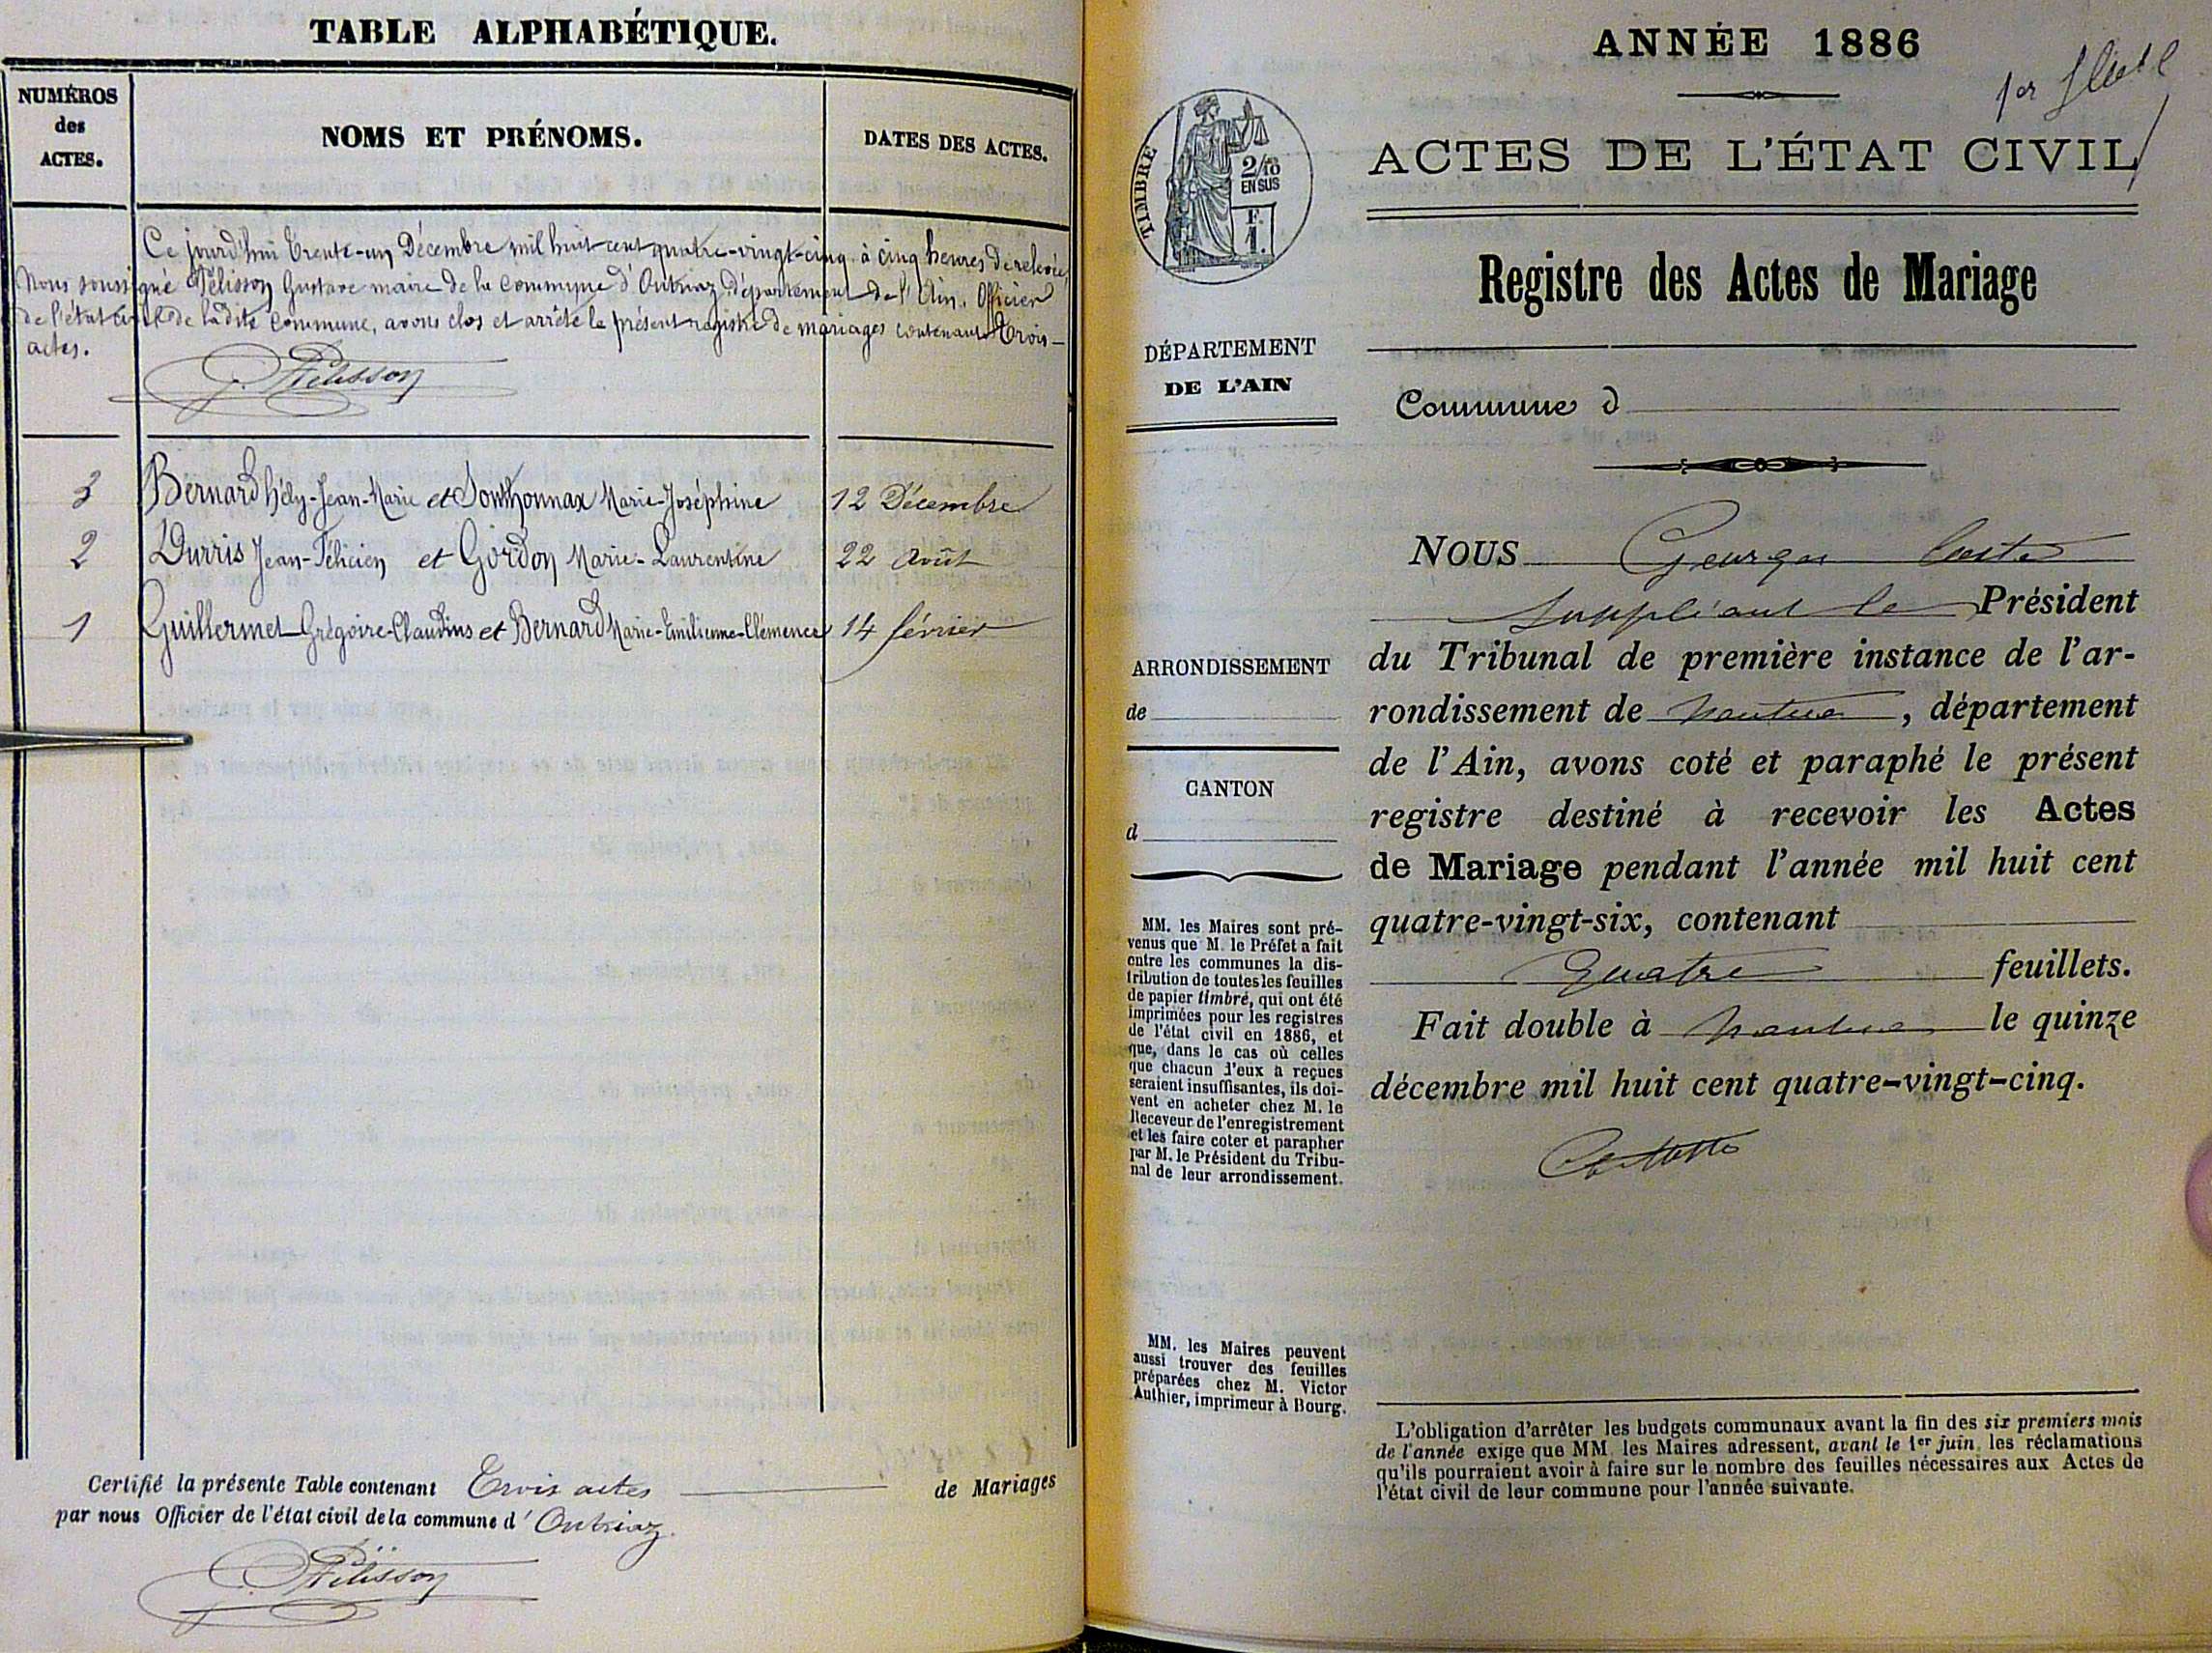 TABLE ALPHABÉTIQUE.
NUMÉROS
des
ACTES.
NOMS ET PRÉNOMS.
DATES DES ACTES.
Ce jourd'hui Trente-un Décembre mil huit cent quatre-vingt-cinq à cinq heures de relevée,
Nous soussigné Pélisson Gustave maire de la Commune d'Outriaz département de l'Ain, Officier
de l'état civil de ladite Commune, avons clos et arrêté le présent registre de mariages contenant Trois
actes.
G. Pélisson
3 Bernard Hély-Jean-Marie et Sonthonnax Marie-Joséphine 12 Décembre
2 Durris Jean-Félicien et Gordon Marie-Laurentine 22 Août
1 Guillermet Grégoire-Claudius et Bernard Marie-Emilienne-Clémence 14 février
Certifié la présente Table contenant Trois actes de Mariages
par nous Officier de l'état civil de la commune d'Outriaz.
G. Pélisson
ANNÉE 1886
1er
ACTES DE L'ÉTAT CIVIL
TIMBRE
2/10
EN SUS
F.
1.
Registre des Actes de Mariage
DÉPARTEMENT
DE L'AIN
Commune d
ARRONDISSEMENT
de
CANTON
d
MM. les Maires sont pré-
venus que M. le Préfet a fait
entre les communes la dis-
tribution de toutes les feuilles
de papier timbré, qui ont été
imprimées pour les registres
de l'état civil en 1886, et
que, dans le cas où celles
que chacun d'eux a reçues
seraient insuffisantes, ils doi-
vent en acheter chez M. le
Receveur de l'enregistrement
et les faire coter et parapher
par M. le Président du Tribu-
nal de leur arrondissement.
MM. les Maires peuvent
aussi trouver des feuilles
préparées chez M. Victor
Authier, imprimeur à Bourg.
NOUS Georges
suppléant le Président
du Tribunal de première instance de l'ar-
rondissement de Nantua, département
de l'Ain, avons coté et paraphé le présent
registre destiné à recevoir les Actes
de Mariage pendant l'année mil huit cent
quatre-vingt-six, contenant
Quatre feuillets.
Fait double à Nantua le quinze
décembre mil huit cent quatre-vingt-cinq.
L'obligation d'arrêter les budgets communaux avant la fin des six premiers mois
de l'année exige que MM. les Maires adressent, avant le 1er juin, les réclamations
qu'ils pourraient avoir à faire sur le nombre des feuilles nécessaires aux Actes de
l'état civil de leur commune pour l'année suivante.